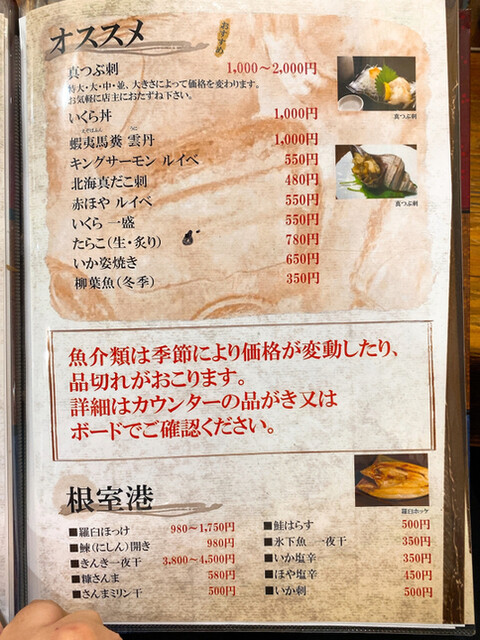 オススメ
おすすめ
真つぶ刺 1,000～2,000円
特大・大・中・並、大きさによって価格を変わります。
お気軽に店主におたずね下さい。
真つぶ刺
いくら丼 1,000円
えぞばふん うに
蝦夷馬糞 雲丹 1,000円
キングサーモン ルイベ 550円
北海真だこ刺 480円
赤ほや ルイベ 550円
真つぶ刺
いくら 一盛 550円
たらこ（生・炙り） 780円
いか姿焼き 650円
柳葉魚（冬季） 350円
魚介類は季節により価格が変動したり、
品切れがおこります。
詳細はカウンターの品がき又は
ボードでご確認ください。
根室港
羅臼ホッケ
■羅臼ほっけ 980～1,750円
■鰊（にしん）開き 980円
■きんき一夜干 3,800～4,500円
■糠さんま 580円
■さんまミリン干 500円
■鮭はらす 500円
■氷下魚 一夜干 350円
■いか塩辛 350円
■ほや塩辛 450円
■いか刺 500円